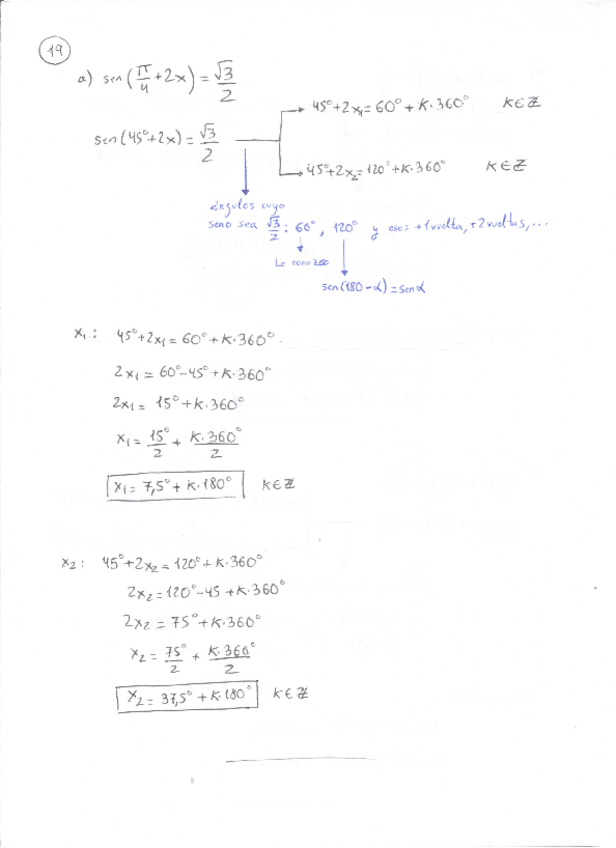 19
a) sen(π/4 + 2x) = √3/2
sen(45°+2x) = √3/2
45°+2x₁ = 60° + K·360° K∈ℤ
45°+2x₂ = 120° + K·360° K∈ℤ
ángulos cuyo
seno sea √3/2 : 60°, 120° y esos +1 vuelta, +2 vueltas, ...
Lo conozco
sen(180-α) = sen α
x₁: 45°+2x₁ = 60° + K·360°
2x₁ = 60°-45° + K·360°
2x₁ = 15° + K·360°
x₁ = 15°/2 + K·360°/2
x₁ = 7,5° + K·180° K∈ℤ
x₂: 45°+2x₂ = 120° + K·360°
2x₂ = 120°-45 + K·360°
2x₂ = 75° + K·360°
x₂ = 75°/2 + K·360°/2
x₂ = 37,5° + K·180° K∈ℤ